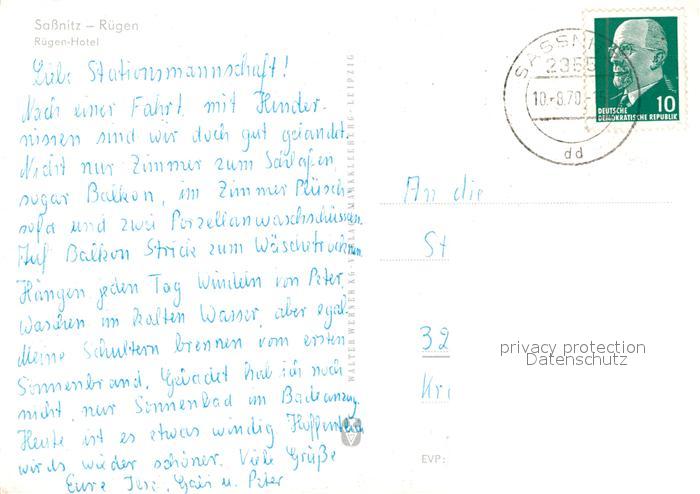 Saßnitz – Rügen
Rügen-Hotel
Liebe Stationsmannschaft!
Nach einer Fahrt mit Hinder-
nissen sind wir doch gut gelandet.
Nicht nur Zimmer zum Schlafen,
sogar Balkon, im Zimmer Plüsch-
sofa und zwei Porzellanwaschschüsseln.
Auf Balkon Stricke zum Wäschetrocknen
Hängen jeden Tag Windeln von Peter,
waschen im kalten Wasser, aber egal.
Meine Schultern brennen vom ersten
Sonnenbrand. Gebadet hab ich noch
nicht, nur Sonnenbad im Badeanzug.
Heute ist es etwas windig Hoffentlich
wirds wieder schöner. Viele Grüße
Eure u. Peter
WALTER WERNER KG-VERLAG MARKKLEEBERG-LEIPZIG
SASSNITZ
2355
10.-8.70.-
dd
10
DEUTSCHE
DEMOKRATISCHE REPUBLIK
An die
St
32
Kr
privacy protection
Datenschutz
EVP: